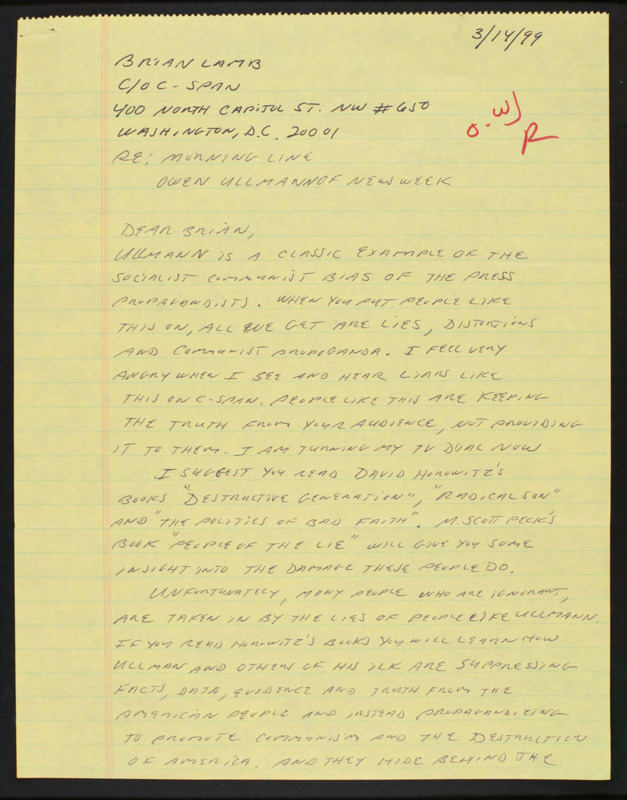 3/14/99
BRIAN LAMB
C/O C-SPAN
400 NORTH CAPITOL ST. NW #650
WASHINGTON, D.C. 20001
O.W)
R
RE: MORNING LINE
OWEN ULLMANN OF NEWSWEEK
DEAR BRIAN,
ULLMANN IS A CLASSIC EXAMPLE OF THE
SOCIALIST COMMUNIST BIAS OF THE PRESS
PROPAGANDISTS. WHEN YOU PUT PEOPLE LIKE
THIS ON, ALL WE GET ARE LIES, DISTORTIONS
AND COMMUNIST PROPOGANDA. I FEEL VERY
ANGRY WHEN I SEE AND HEAR LIARS LIKE
THIS ON C-SPAN. PEOPLE LIKE THIS ARE KEEPING
THE TRUTH FROM YOUR AUDIENCE, NOT PROVIDING
IT TO THEM. I AM TURNING MY TV DUAL NOW
I SUGGEST YOU READ DAVID HOROWITZ'S
BOOKS "DESTRUCTIVE GENERATION", "RADICAL SON"
AND "THE POLITICS OF BAD FAITH". M. SCOTT PECK'S
BOOK "PEOPLE OF THE LIE" WILL GIVE YOU SOME
INSIGHT INTO THE DAMAGE THESE PEOPLE DO.
UNFORTUNATELY, MANY PEOPLE WHO ARE IGNORANT,
ARE TAKEN IN BY THE LIES OF PEOPLE LIKE ULLMANN.
IF YOU READ HOROWITZ'S BOOKS YOU WILL LEARN HOW
ULLMAN AND OTHERS OF HIS ILK ARE SUPPRESSING
FACTS, DATA, EVIDENCE AND TRUTH FROM THE
AMERICAN PEOPLE AND INSTEAD PROPAGANDIZING
TO PROMOTE COMMUNISM AND THE DESTRUCTION
OF AMERICA. AND THEY HIDE BEHIND THE